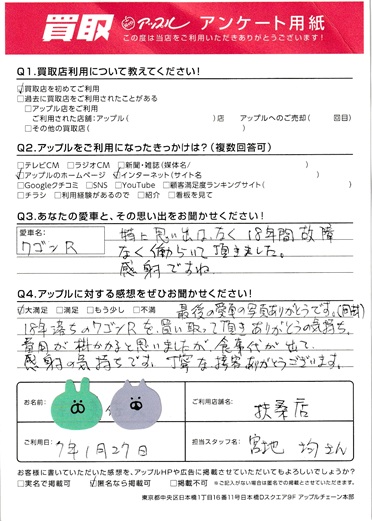 買取 アップル アンケート用紙
この度は当店をご利用いただきありがとうございます!
Q1.買取店利用について教えてください!
☑買取店を初めてご利用
□過去に買取店をご利用されたことがある
□アップル店をご利用
ご利用された店舗:アップル( )店 アップルへのご売却( 回目)
□その他の買取店( )
Q2.アップルをご利用になったきっかけは?(複数回答可)
□テレビCM □ラジオCM □新聞・雑誌(媒体名/ )
☑アップルのホームページ ☑インターネット(サイト名 )
□Googleクチコミ □SNS □YouTube □顧客満足度ランキングサイト( )
□チラシ □利用経験があるので □紹介 □看板を見て
Q3.あなたの愛車と、その思い出をお聞かせください!
愛車名:
ワゴンR
特に思い出はなく18年間故障
なく働らいて頂きました。
感射ですね
Q4.アップルに対する感想をぜひお聞かせください!
☑大満足 □満足 □もう少し □不満
最後の愛車の写真ありがとうです。
18年落ちのワゴンRを買い取って頂きありがとうの気持ち,
費用が掛かかると思いましたが、食事代が出て
感射の気持ちです。丁寧な接客ありがとうございます。
お名前:
ご利用店舗名:
扶桑店
ご利用日:
7年1月27日
担当スタッフ名:
宮地 均さん
お客様に書いていただいた感想を、アップルHPや広告に掲載させていただいてもよろしいでしょうか?
□実名で掲載可 ☑匿名なら掲載可 □掲載不可 ※ご記入がない場合は匿名での掲載とさせていただきます。
東京都中央区日本橋1丁目16番11号日本橋Dスクエア9F アップルチェーン本部